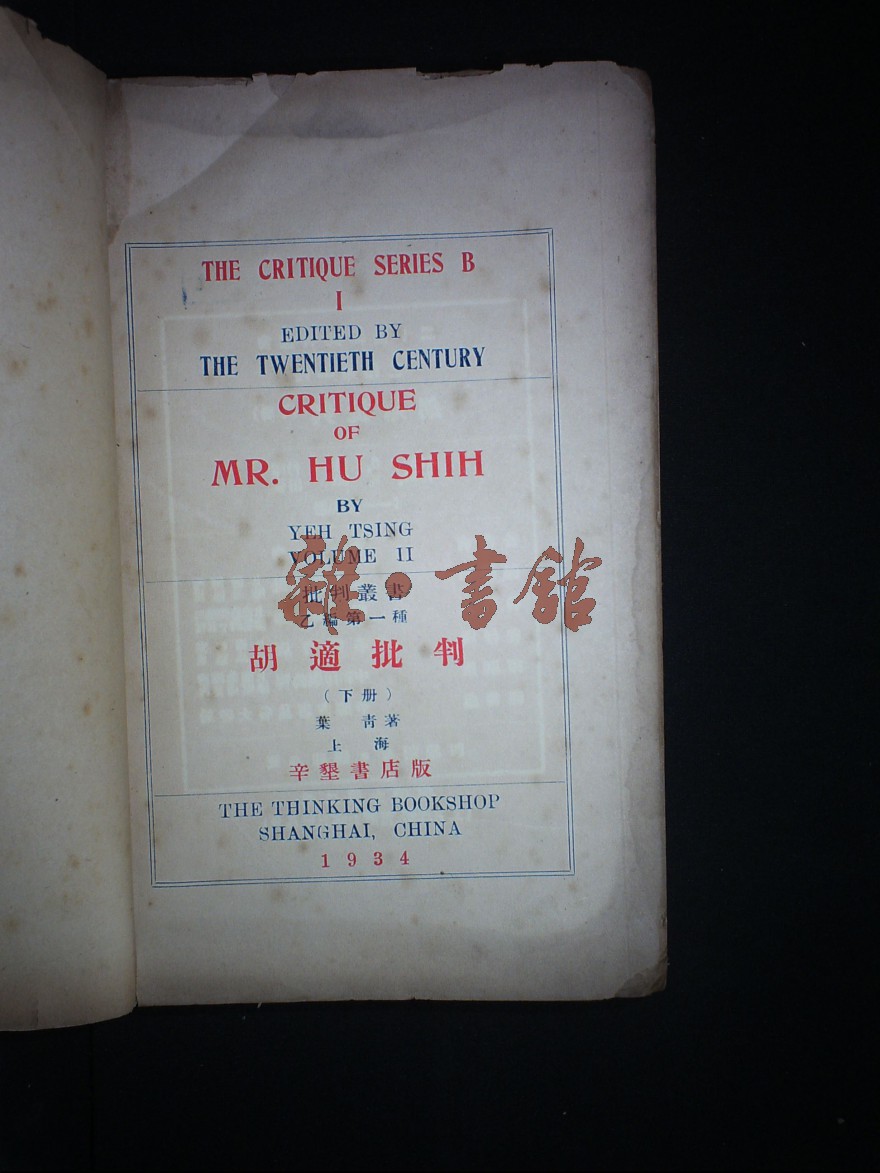 THE CRITIQUE SERIES B
I
EDITED BY
THE TWENTIETH CENTURY
CRITIQUE
OF
MR. HU SHIH
BY
YEH TSING
VOLUME II
雜·書館
批判叢書
乙編第一種
胡適批判
（下册）
葉青著
上海
辛墾書店版
THE THINKING BOOKSHOP
SHANGHAI, CHINA
1934